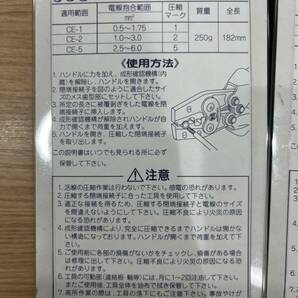 適用範囲 電線抱合範囲 圧縮 質量 全長
mm² マーク
CE-1 0.5～1.75 1
CE-2 1.0～3.0 2 250g 182mm
CE-5 2.5～6.0 5
《使用方法》
1. ハンドルに力を加え、成形確認機構(内
蔵)を解除し、ハンドルを開きます。
2. 閉端接続子を図のように適合したサイ
ズのメス歯型部にセットして下さい。
3. 所定の長さに被覆剥ぎをした電線を閉
端接続子に挿入します。
4. 成形確認機構が解除されハンドルが自
力で開くまで荷重を加えて下さい。
5. ハンドルを開き、圧縮した閉端接続子
を取り出します。
この説明書はいつでも見られる所に必ず
保管して下さい。
⚠注意
1. 活線の圧縮作業は行わないで下さい。感電の恐れがあります。
2. 圧縮する閉端接続子に合った工具を使用して下さい。
3. 適正な接続を得るため、圧縮する閉端接続子と電線のサイズ
を間違えないようにして下さい。圧縮不良により火災の原因に
なる恐れがあります。
4. 成形確認機構により、完全に圧縮できるまでハンドルは開か
ない構造になっております。ハンドルが開くまで荷重を加えて
下さい。
5. ご使用前に各部の損傷がないかをチェックし、損傷がある場合
は修理に出して下さい。圧縮不良により火災の原因になる恐れ
があります。
6. 工具の可動部(連結板・軸等)には、月に1～2回注油して下さい。
7. 高所作業の際は、工具の落下にもご注意下さい。